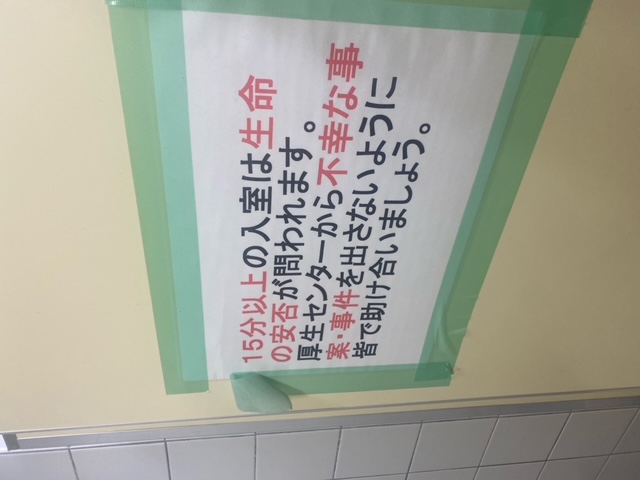 15分以上の入室は生命
の安否が問われます。
厚生センターから不幸な事
案・事件を出さないように
皆で助け合いましょう。